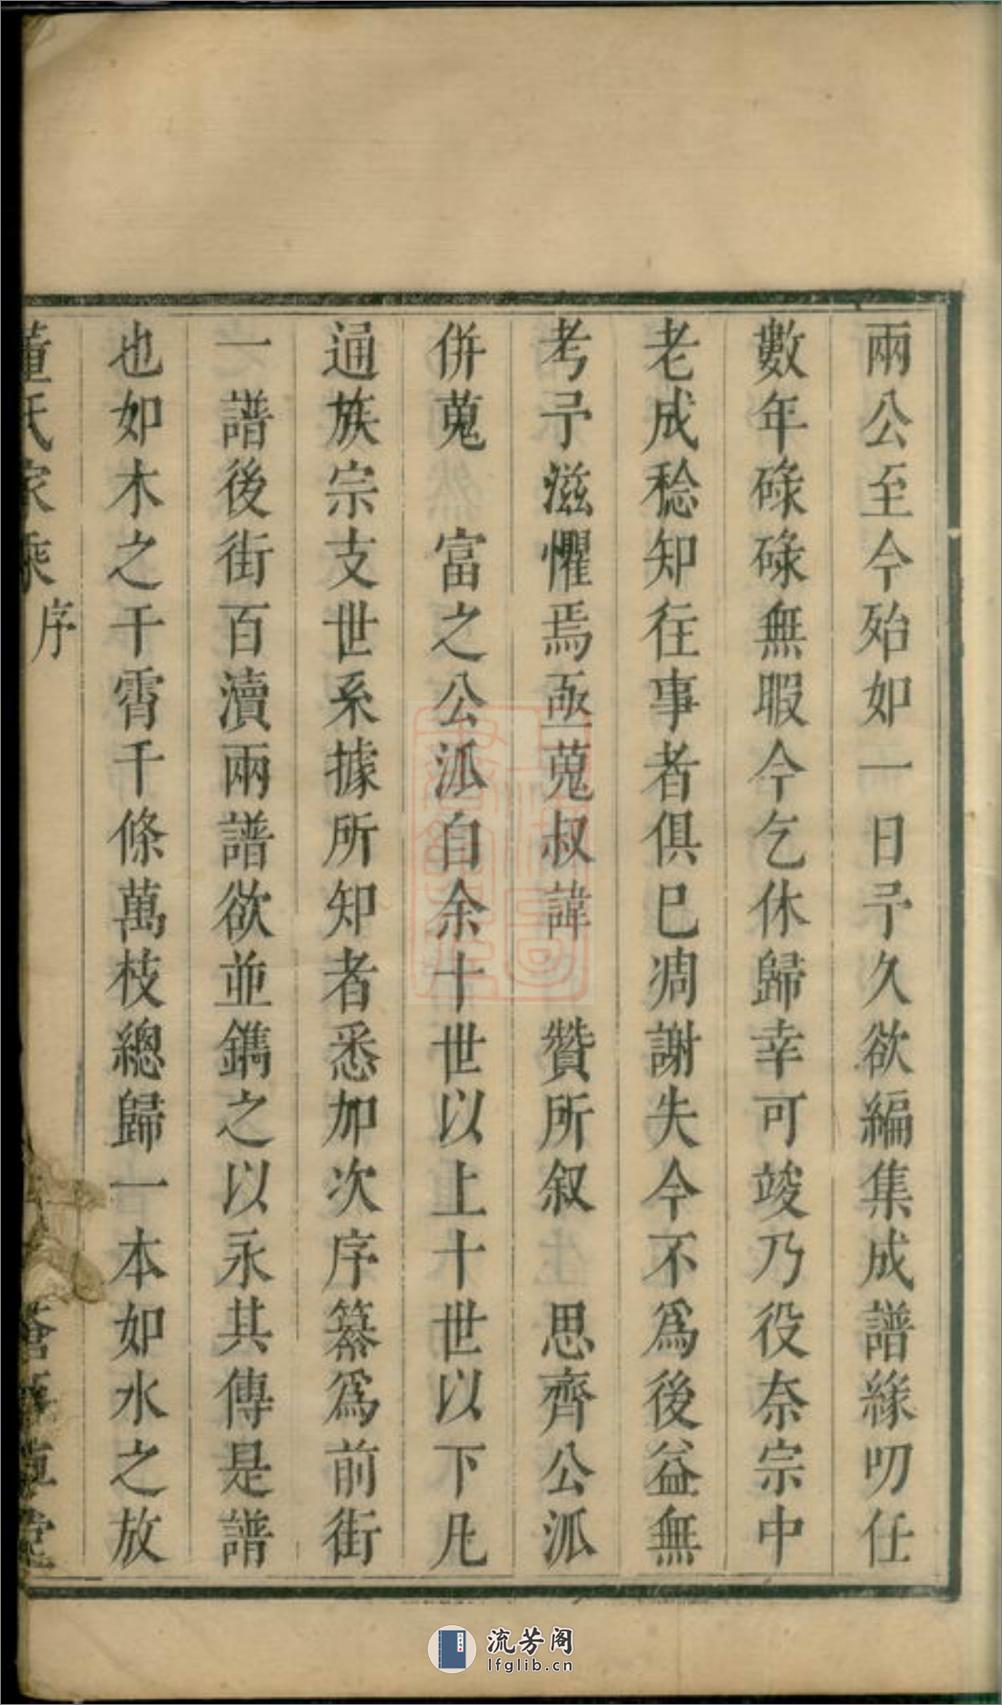 兩公至今殆如一日予久欲編集成譜緣叨任
數年碌碌無暇今乞休歸幸可竣乃役奈宗中
老成稔知往事者俱已凋謝失今不爲後益無
考予滋懼焉亟蒐叔諱　贊所叙　思齊公派
併蒐　富之公派自余十世以上十世以下凡
通族宗支世系據所知者悉加次序纂爲前街
一　譜後街百瀆兩譜欲並鐫之以永其傳是譜
也如木之干霄千條萬枝總歸一本如水之放
董氏家乘 序 草堂
流芳阁
lfglib.cn